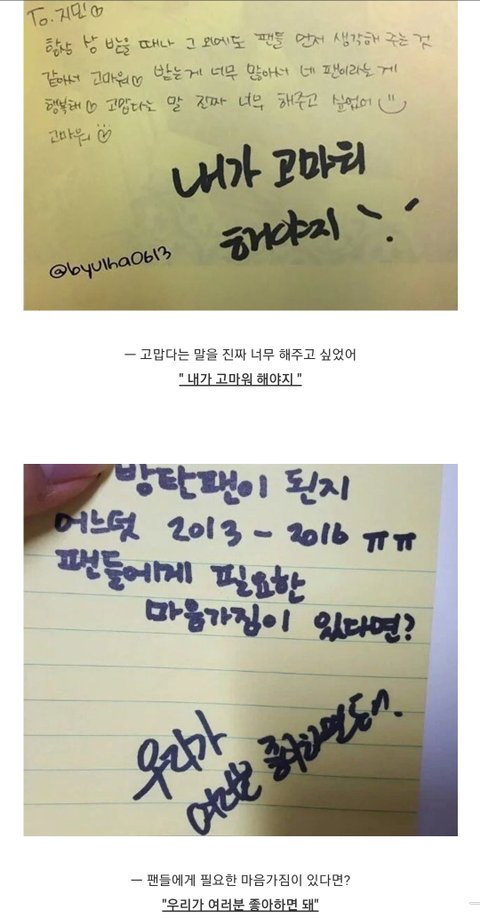 To. 지민♡
항상 상 받을 때나 그 외에도 팬들 먼저 생각해 주는 것
같아서 고마워♡ 받는게 너무 많아서 네 팬이라는 게
행복해♡ 고맙다는 말 진짜 너무 해주고 싶었어
고마워♡
내가 고마워
해야지
@byulha0613
ㅡ 고맙다는 말을 진짜 너무 해주고 싶었어
" 내가 고마워 해야지 "
방탄팬이 된지
어느덧 2013 - 2016 ㅠㅠ
팬들에게 필요한
마음가짐이 있다면?
우리가
여러분 좋아하면
ㅡ 팬들에게 필요한 마음가짐이 있다면?
"우리가 여러분 좋아하면 돼"